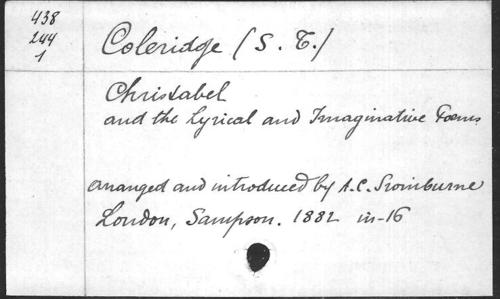 438
244
1
Coleridge (S. T.)
Christabel
and the Lyrical and Imaginative Poems
arranged and introduced by A. C. Swinburne
London, Sampson. 1882 in-16